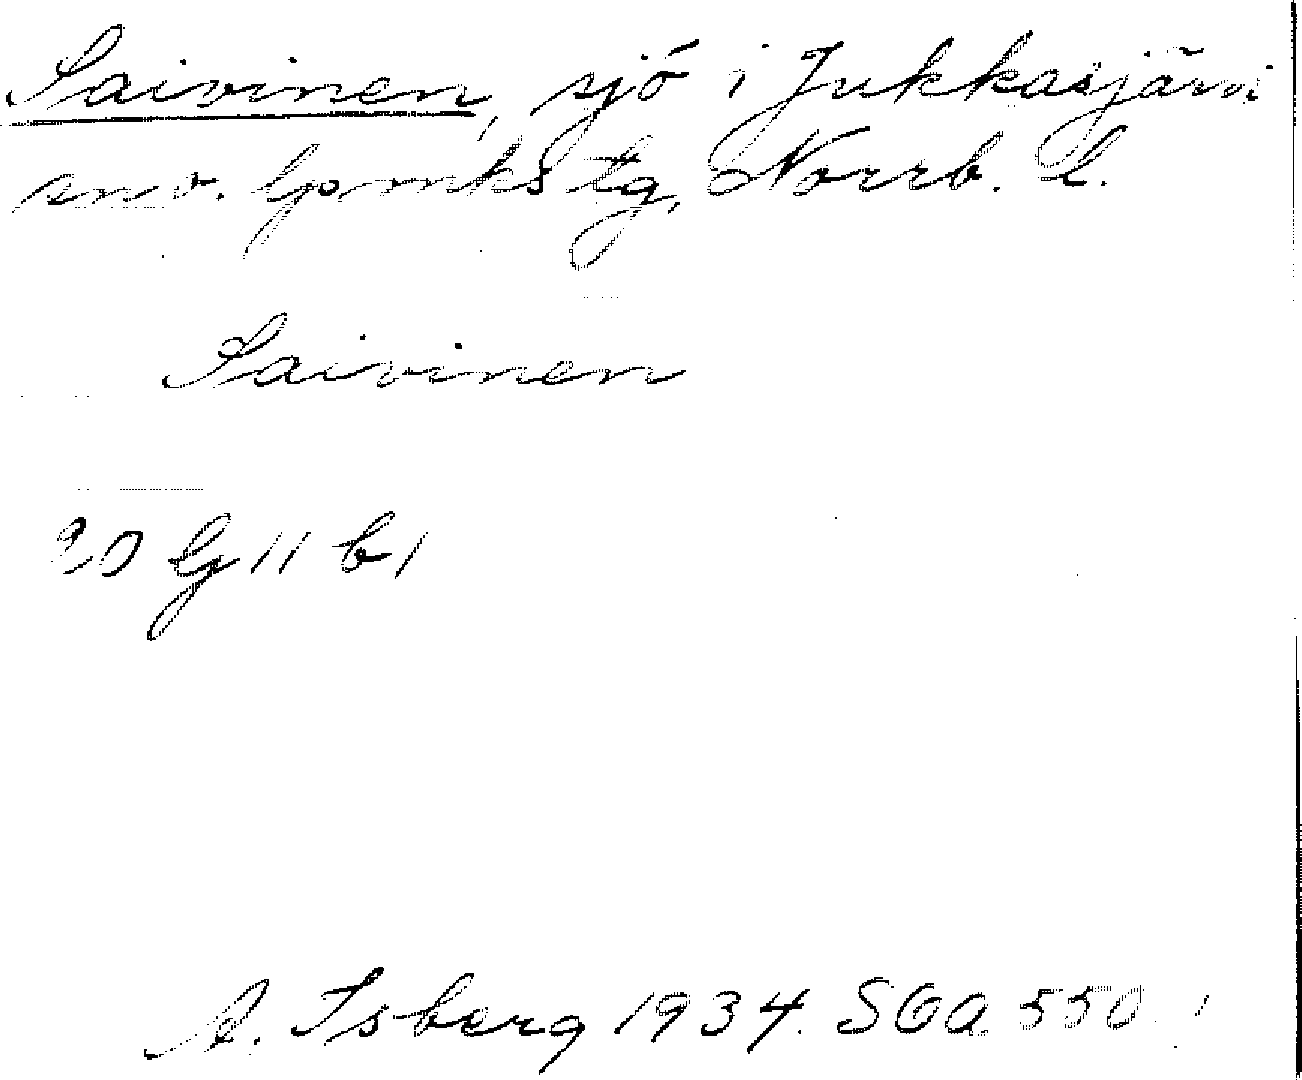 Saivinen, sjö i Jukkasjärvi
sn v. lpmks tg, Norrb. l.
Saivinen
30 G 11 b 1
A. Isberg 1934. SOA 550